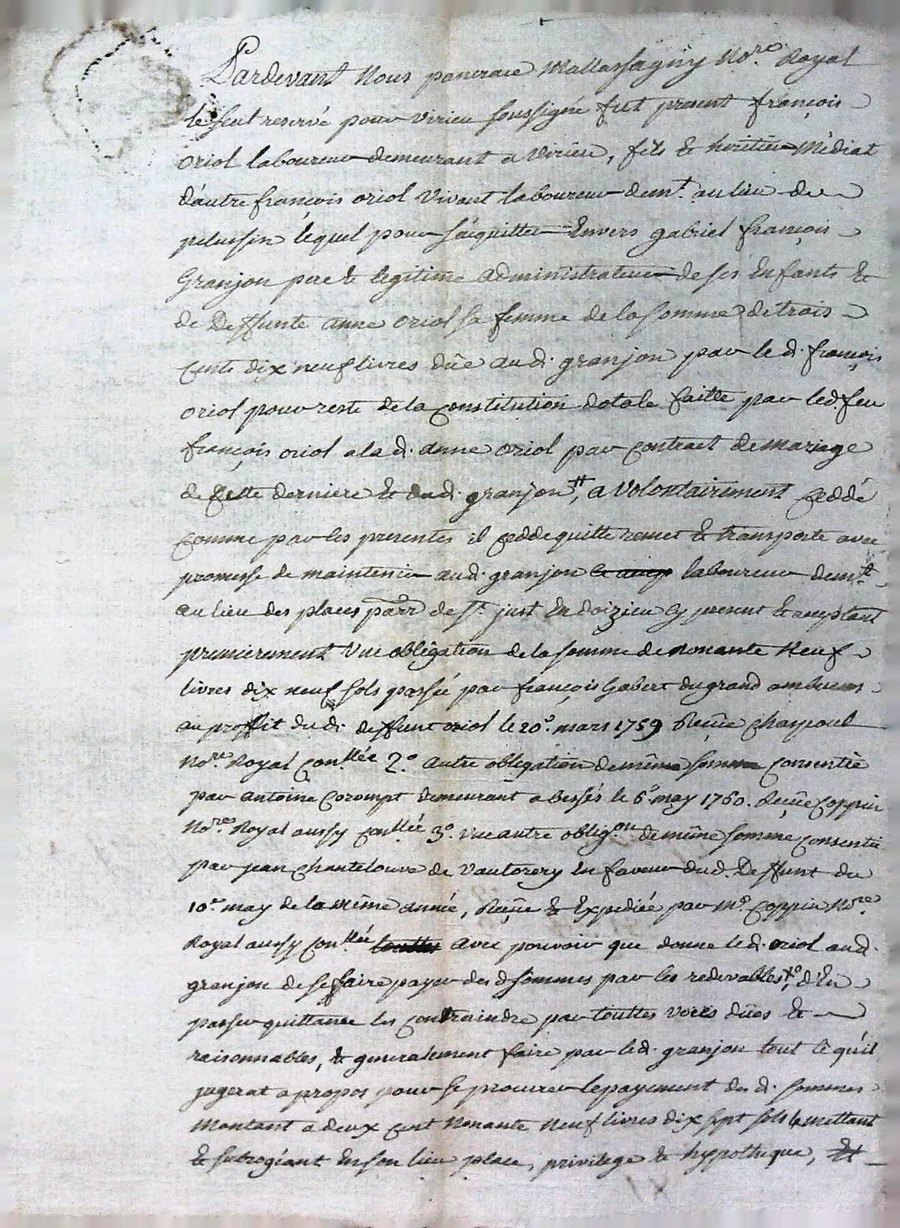 Pardevant Nous pancrace Mallassagny No.re Royal
le seul reservé pour virieu soussigne fut present françois
oriol laboureur demeurant a virieu, fils & heritier Médiat
d'autre françois oriol vivant laboureur dem.t au lieu de
pelussin lequel pour s'aiquitter Envers gabriel françois
Granjon pere & legitime administrateur de ses Enfants &
de Deffunte anne oriol sa femme de la somme de trois
cents dix neuf livres düe aud. granjon par le d. françois
oriol pour reste de la constitution dotale faitte par led. feu
françois oriol a lad. anne oriol par contract de mariage
de cette derniere & dud. granjon, a volontairement ceddé
comme par les presentes il cedde quitte remet & transporte avec
promesse de maintenir aud. granjon laboureur dem.t
au lieu des places parr. de s.t just En doizieu cy present & acceptant
premierement vne obligation de la somme de Nonante Neuf
livres dix neuf sols passée par françois Gabert du grand
au proffit dud. deffunt oriol le 20.e mars 1759 Reçüe
No.re Royal con.llée 2.o autre obligation de même somme consentie
par antoine Corompt demeurant a bessés le 6.e may 1760. Reçüe Coppin
No.re Royal aussy con.llée 3.o vne autre oblig.on de même somme consentie
par jean chantelouve de vautorery En faveur dud. Deffunt du
10.e may de la même année, Reçüe & Expediée par M.e Coppin No.re
Royal aussy con.llée avec pouvoir que donne led. oriol aud.
granjon de se faire payer des d. sommes par les redevables, d'En
passer quittance les contraindre par touttes voies düés &
raisonnables, & generalement faire par led. granjon tout ce qu'il
jugerat a propos pour se procurer le payement des d. sommes
Montant a deux cent Nonante Neuf livres dix sept sols le mettant
& subrogéant En son lieu place, privilege & hypotheque, &